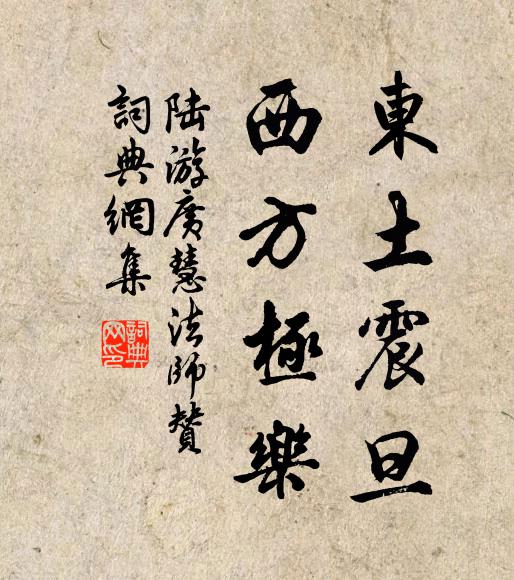 東土震旦
西方極樂
陸游廣慧法師贊
詞典網集
詞典網印